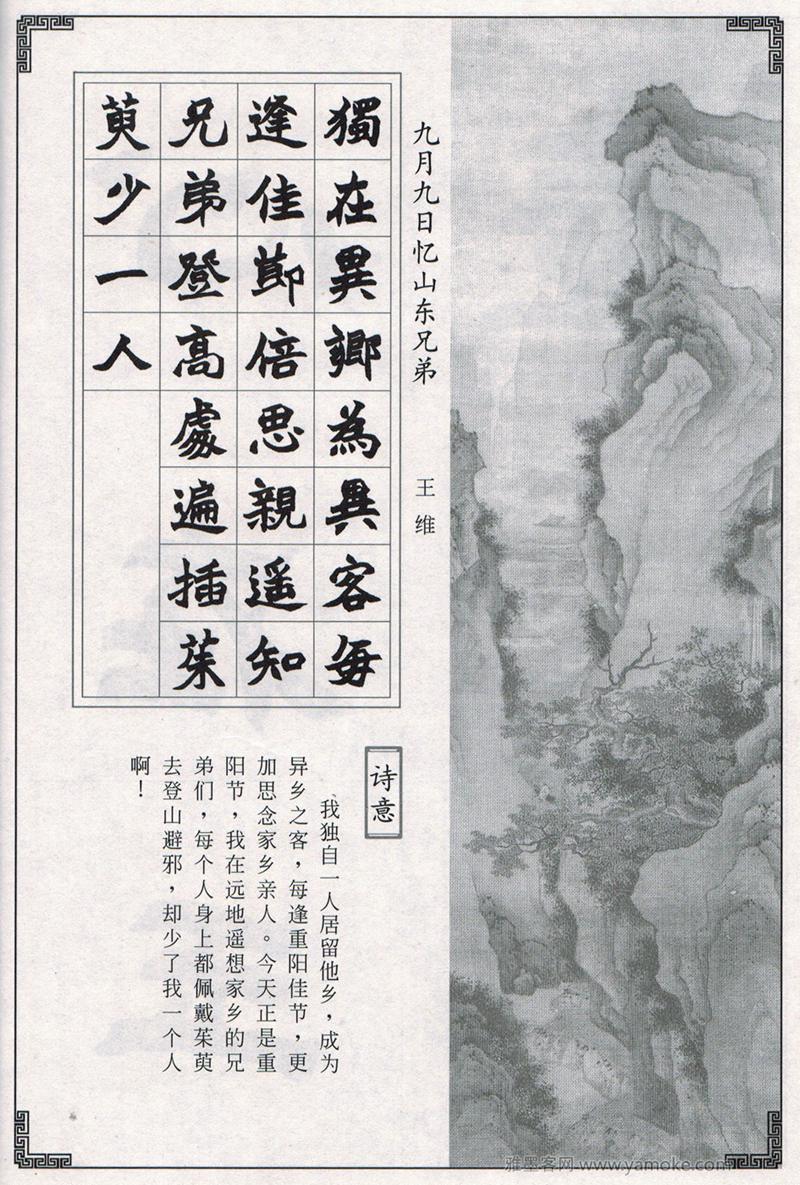 九月九日忆山东兄弟 王维
獨在異鄉為異客每
逢佳節倍思親遥知
兄弟登高處遍插茱
萸少一人
诗意
我独自一人居留他乡，成为
异乡之客，每逢重阳佳节，更
加思念家乡亲人。今天正是重
阳节，我在远地遥想家乡的兄
弟们，每个人身上都佩戴茱萸
去登山避邪，却少了我一个人
啊！
雅墨客网-www.yamoke.com